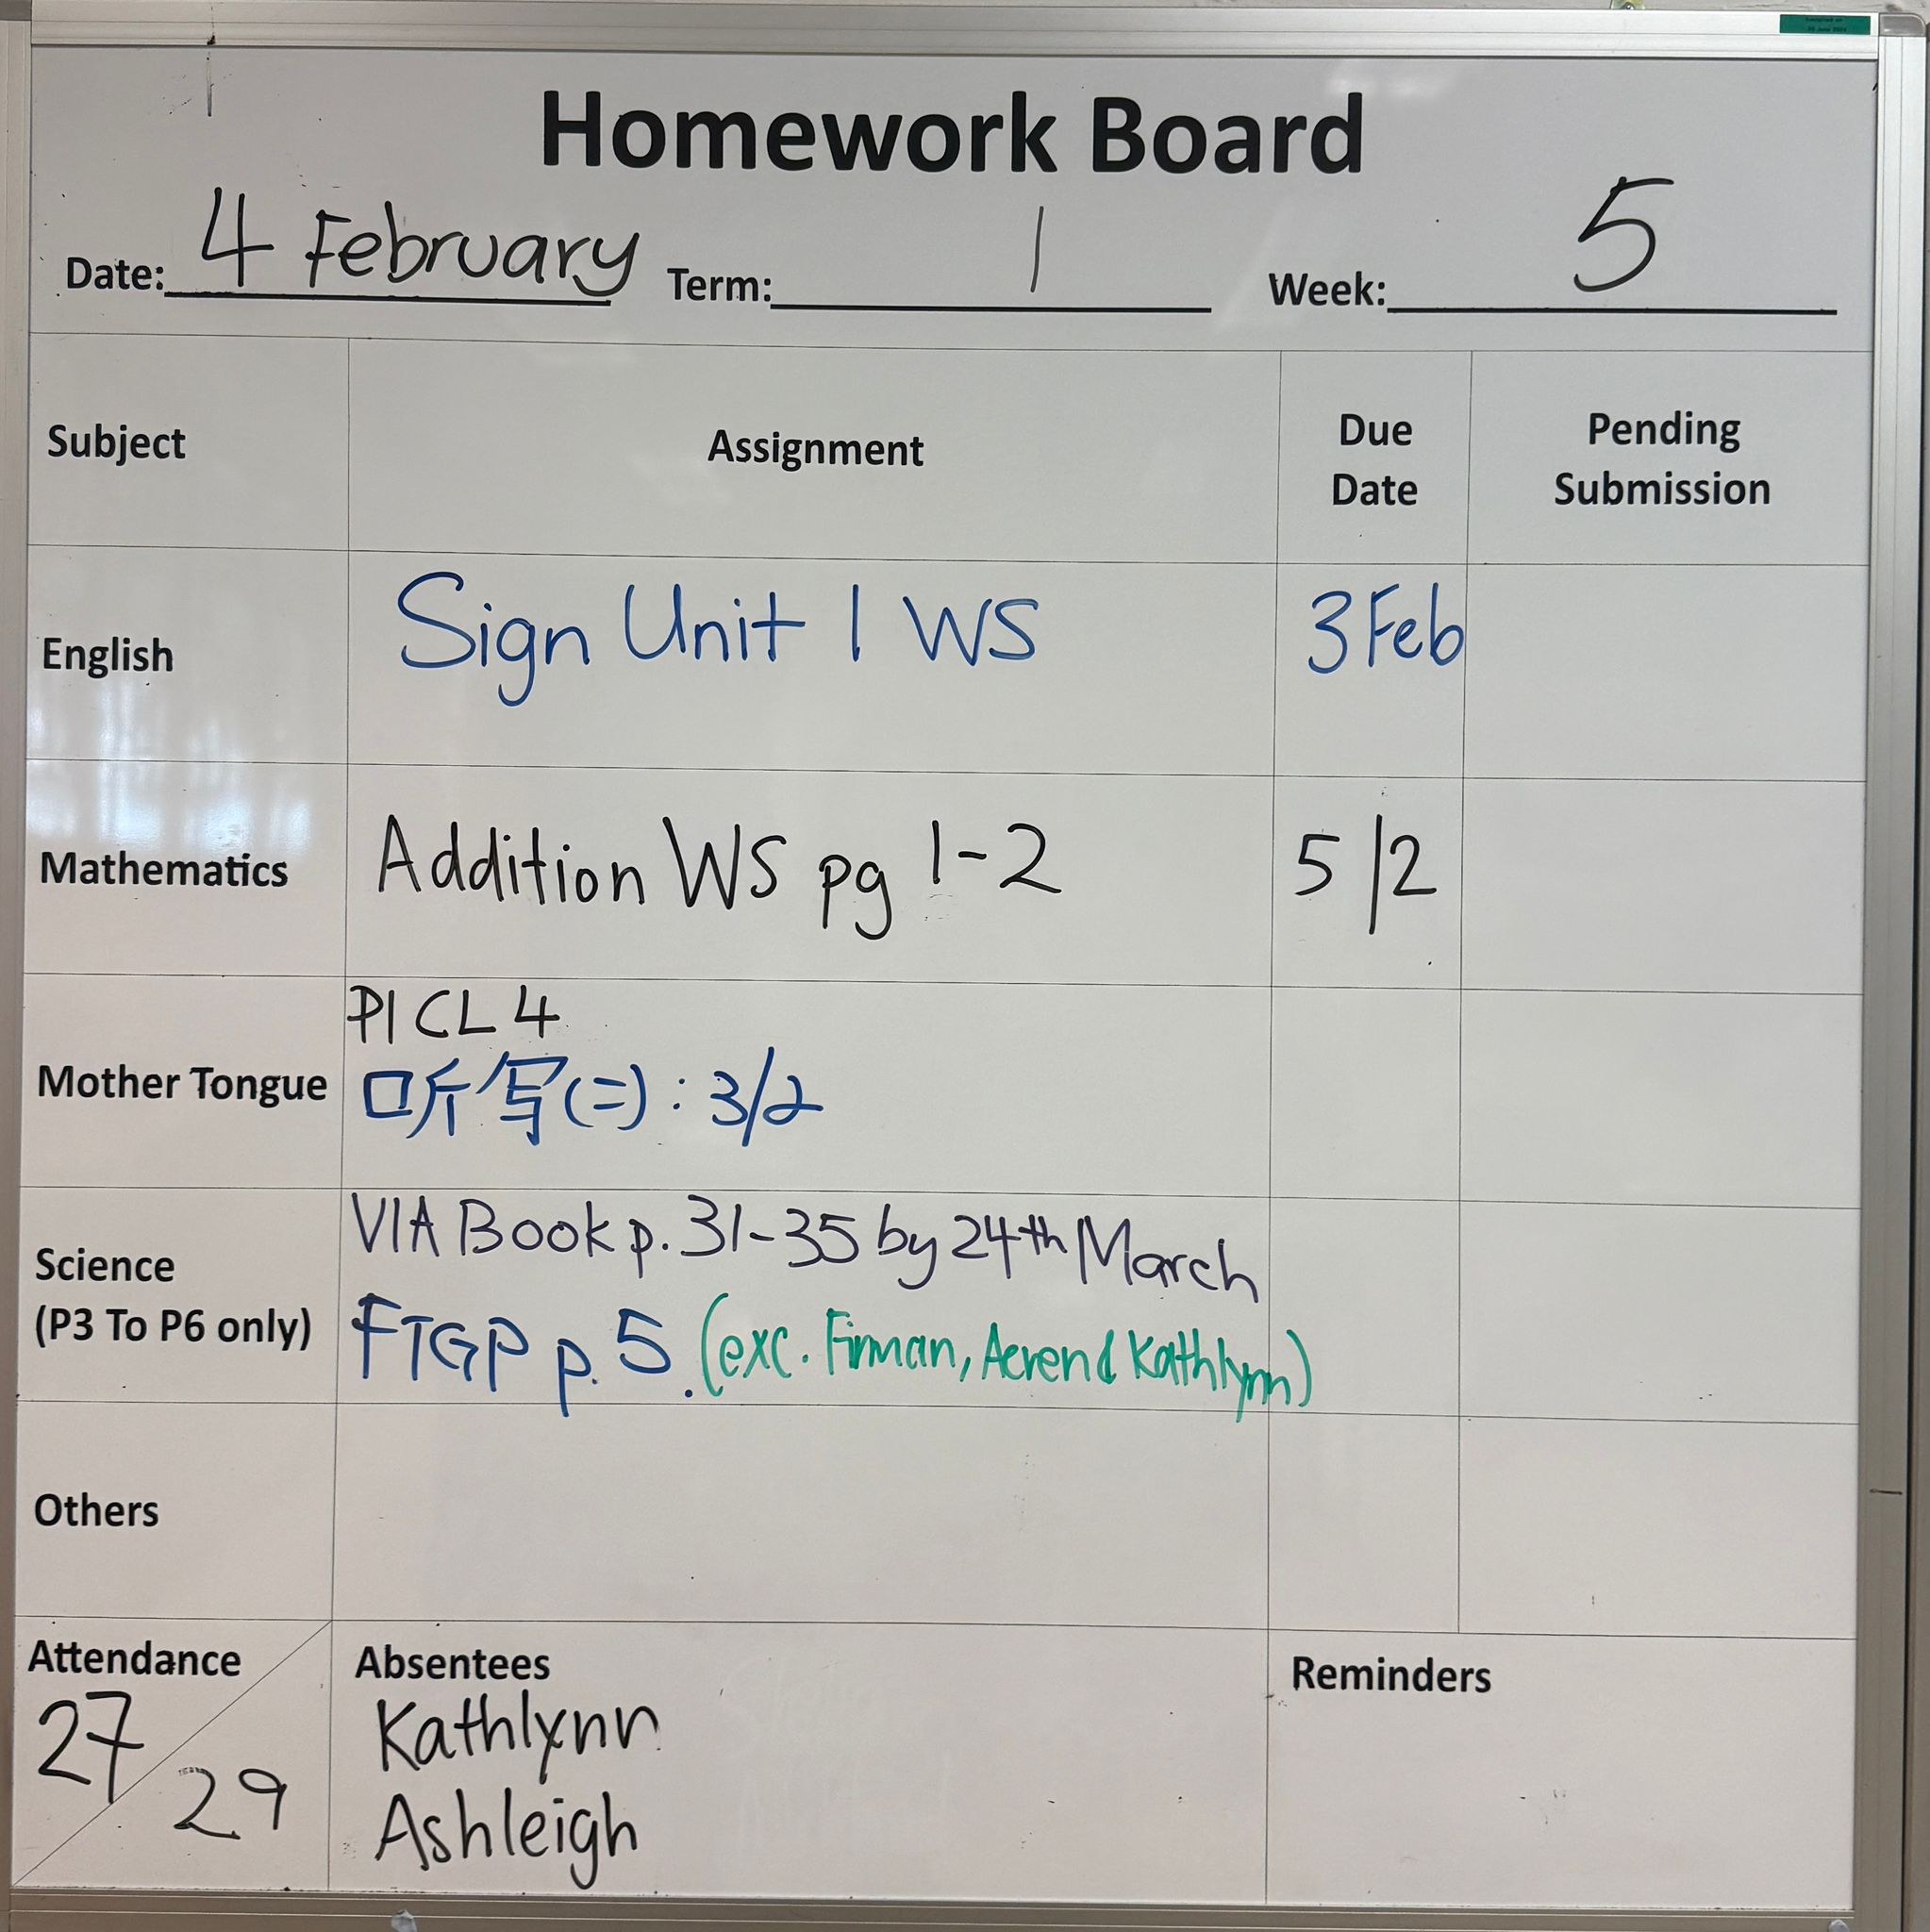 Homework Board
Date: 4 February Term: 1 Week: 5
Subject Assignment Due Date Pending Submission
English Sign Unit 1 WS 3 Feb
Mathematics Addition WS pg 1-2 5/2
Mother Tongue
P1 CL 4
听写(二): 3/2
Science
(P3 To P6 only)
VIA Book p. 31-35 by 24th March
FTGP p. 5. (exc. Firman, Aerend Kathlynn)
Others
Attendance
27/29
Absentees
Kathlynn
Ashleigh
Reminders